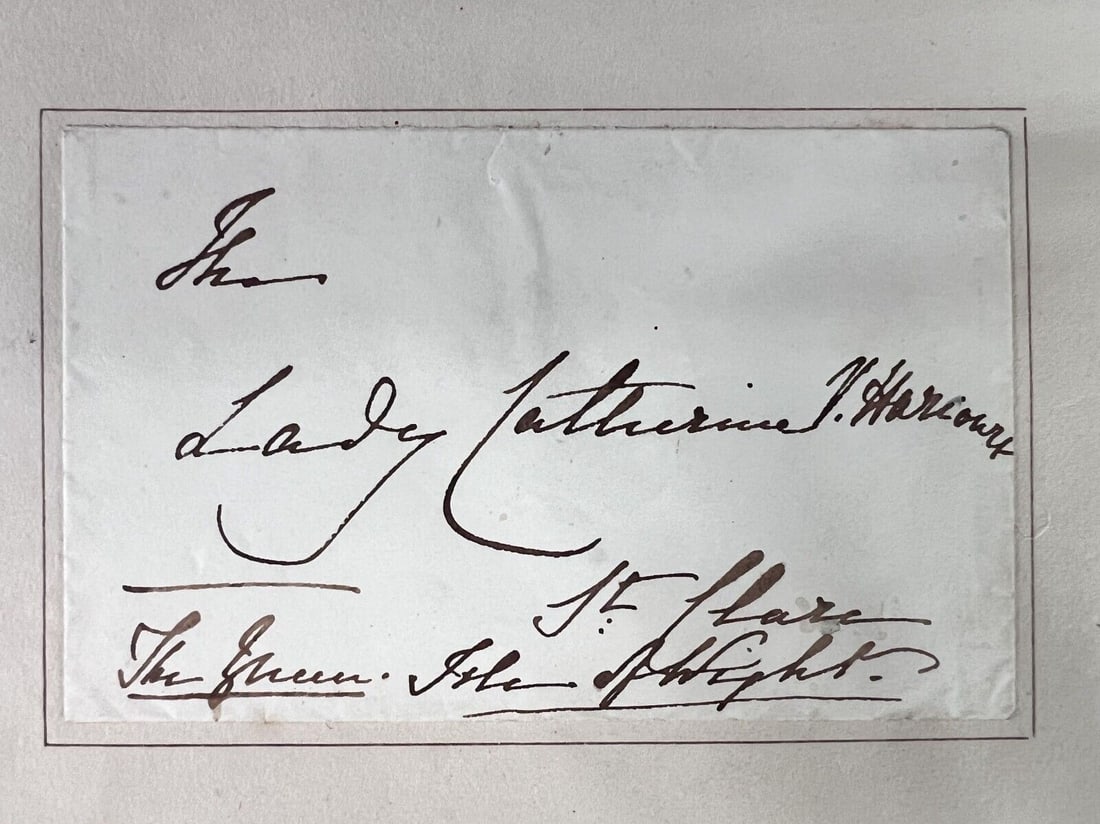 The
Lady Catherine V. Harcourt
St. Clare
The Queen. Isle of Wight.